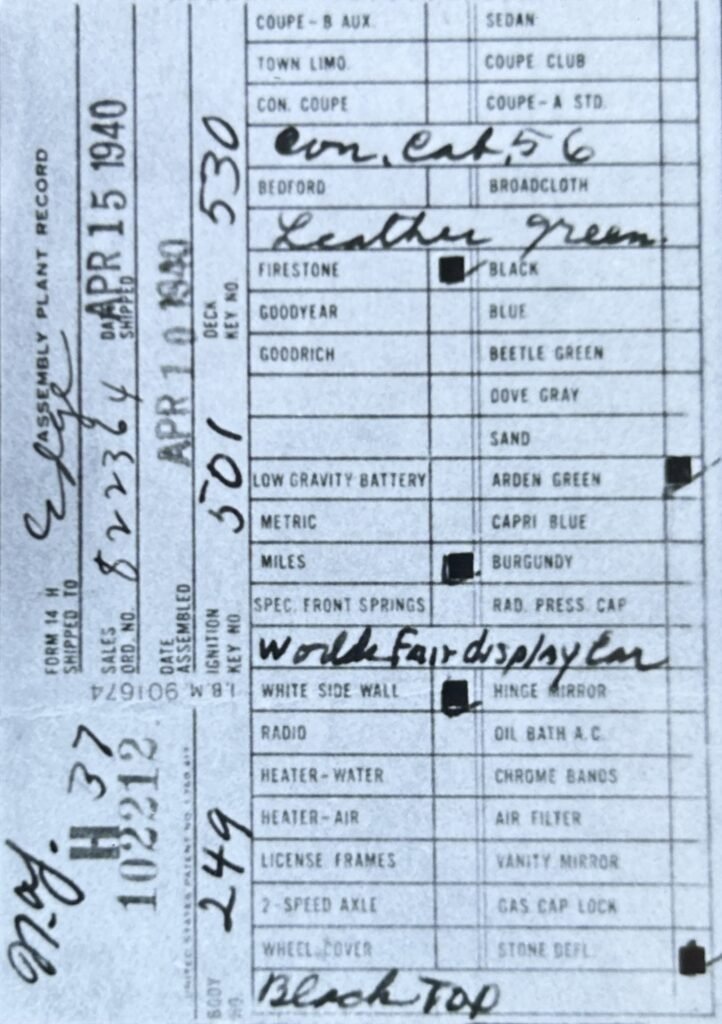 FORM 14 H
ASSEMBLY PLANT RECORD
SHIPPED TO
SALES ORD. NO.
822364
DATE SHIPPED
APR 15 1940
DATE ASSEMBLED
APR 10 1940
IGNITION KEY NO.
501
DECK KEY NO.
530
N.Y.
H 37
102212
I.B.M. 901674
BODY NO.
249
COUPE-B AUX. SEDAN
TOWN LIMO. COUPE CLUB
CON. COUPE COUPE-A STD.
Con. Cab. 56
BEDFORD BROADCLOTH
Leather green.
FIRESTONE BLACK
GOODYEAR BLUE
GOODRICH BEETLE GREEN
DOVE GRAY
SAND
LOW GRAVITY BATTERY ARDEN GREEN
METRIC CAPRI BLUE
MILES BURGUNDY
SPEC. FRONT SPRINGS RAD. PRESS. CAP
Worlds Fair display Car
WHITE SIDE WALL HINGE MIRROR
RADIO OIL BATH A.C.
HEATER-WATER CHROME BANDS
HEATER-AIR AIR FILTER
LICENSE FRAMES VANITY MIRROR
2-SPEED AXLE GAS CAP LOCK
WHEEL COVER STONE DEFL.
Black Top